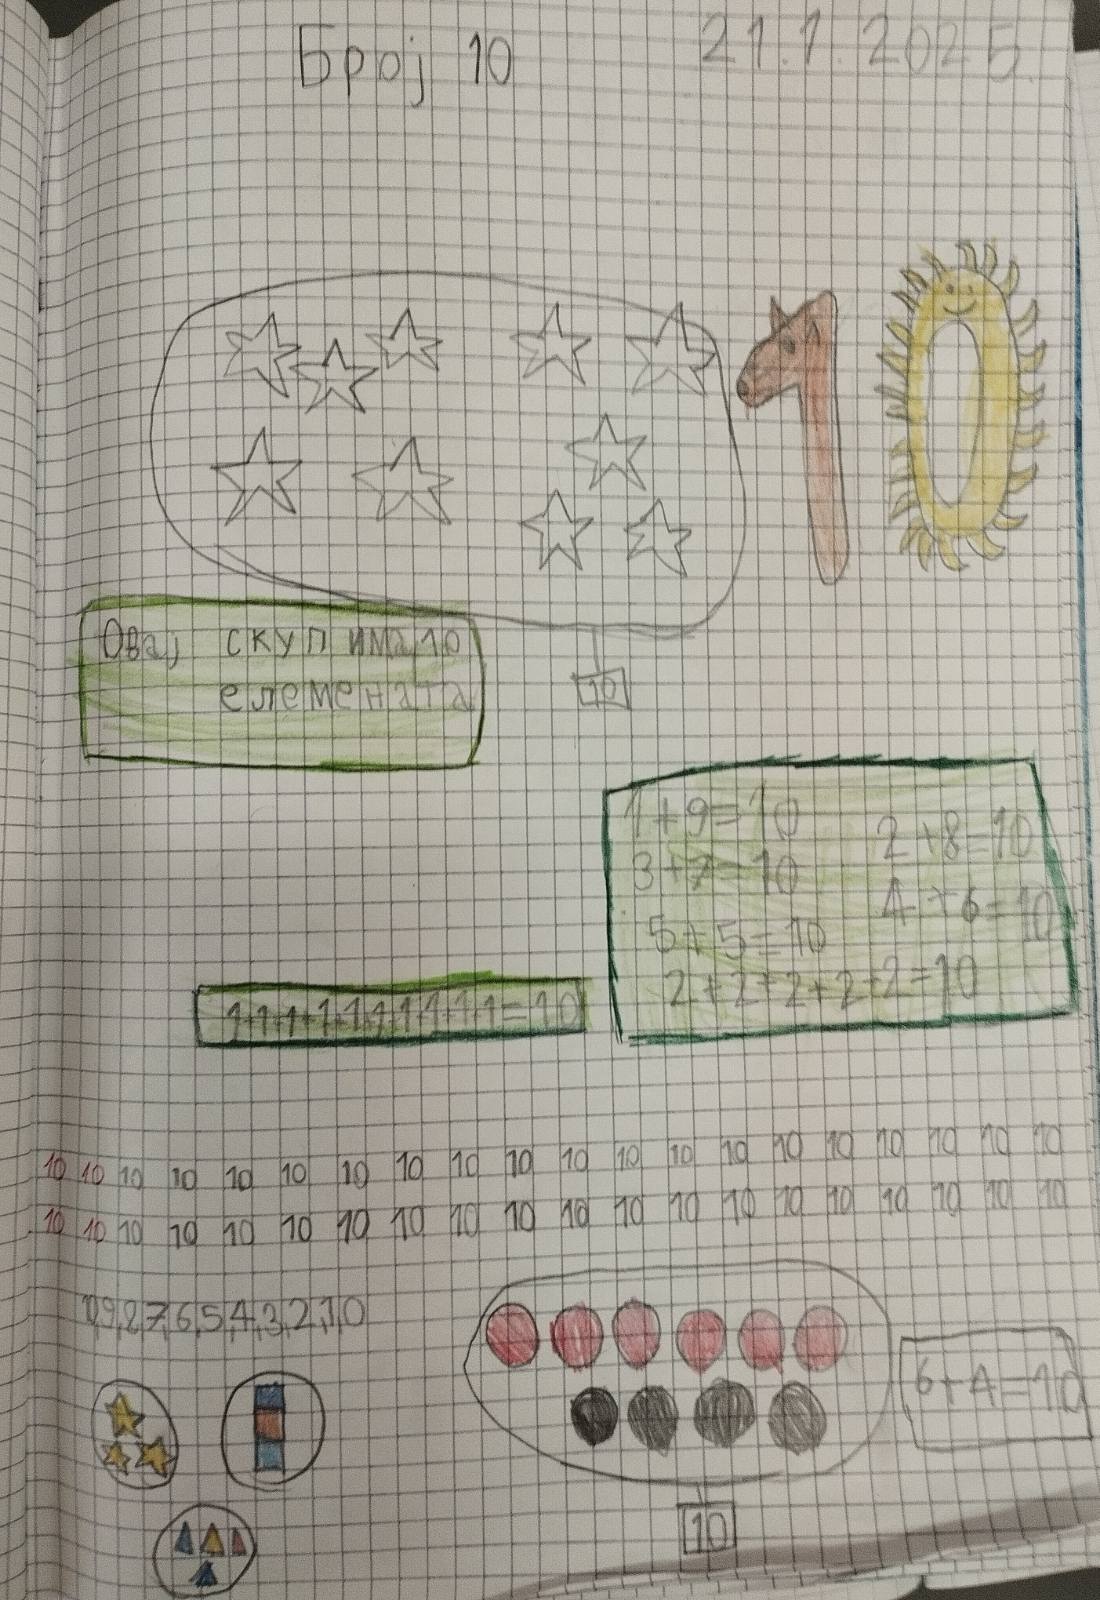 Број 10 21.1.2025.
Овај скуп има 10
елемената
10
1+9=10 2+8=10
3+7=10 4+6=10
5+5=10
2+2+2+2+2=10
1+1+1+1+1+1+1+1+1+1=10
10 10 10 10 10 10 10 10 10 10 10 10 10 10 10 10 10 10 10 10
10 10 10 10 10 10 10 10 10 10 10 10 10 10 10 10 10 10 10 10
10,9,8,7,6,5,4,3,2,1,0
6+4=10
10